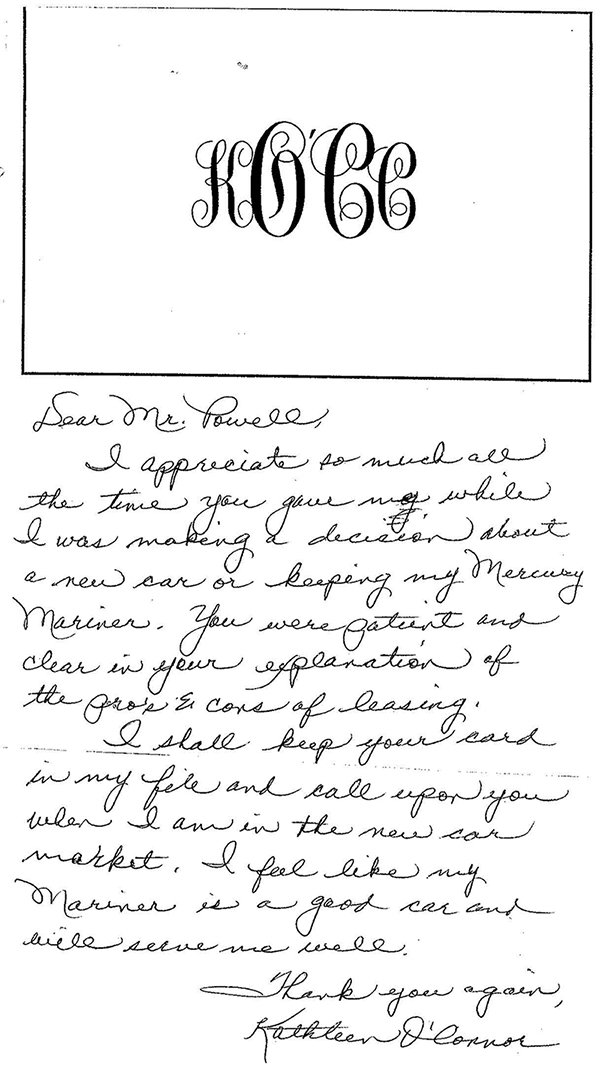 KO'CC
Dear Mr. Powell,
I appreciate so much all
the time you gave me while
I was making a decision about
a new car or keeping my Mercury
Mariner. You were patient and
clear in your explanation of
the pro's & cons of leasing.
I shall keep your card
in my file and call upon you
when I am in the new car
market. I feel like my
Mariner is a good car and
will serve me well.
Thank you again,
Kathleen O'Connor